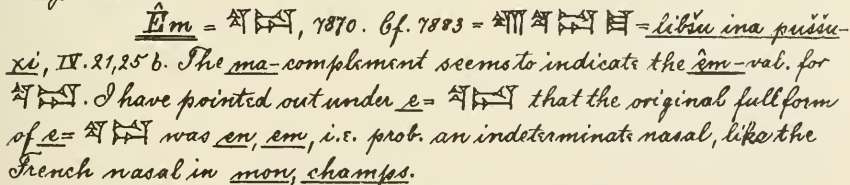 Êm = 𒌓𒁺, 7870. Cf. 7883 = 𒌓𒁺𒈠 = libšu ina puššu-
xi, IV. 21,25 b. The ma-complement seems to indicate the êm-val. for
𒌓𒁺. I have pointed out under e = 𒌓𒁺 that the original full form
of e = 𒌓𒁺 was en, em, i.e. prob. an indeterminate nasal, like the
French nasal in mon, champs.